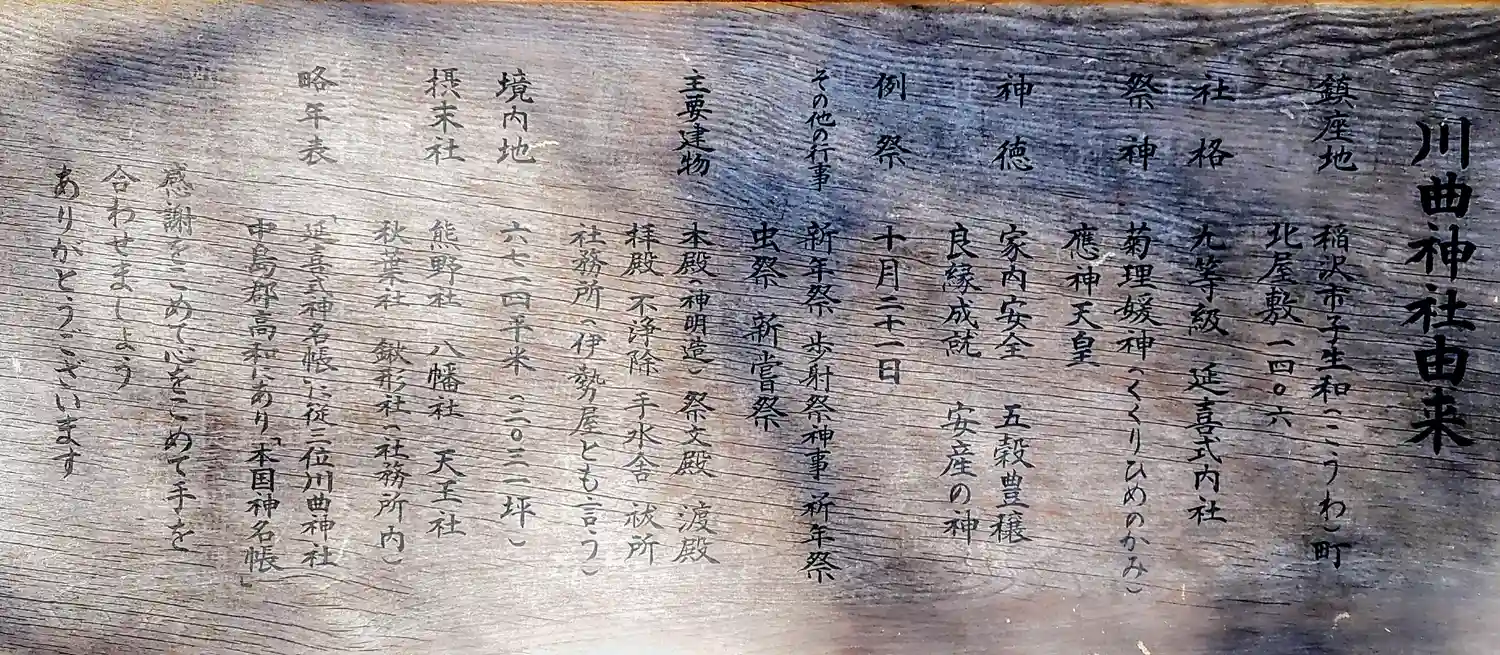 川曲神社由来
鎮座地 稲沢市子生和(こうわ)町
北屋敷一四〇六
社格 九等級 延喜式内社
祭神 菊理媛神(くくりひめのかみ)
應神天皇
神徳 家内安全 五穀豊穣
良縁成就 安産の神
例祭 十月二十一日
その他の行事 新年祭 歩射祭神事 祈年祭
虫祭 新嘗祭
主要建物 本殿(神明造) 祭文殿 渡殿
拝殿 不浄除 手水舎 祓所
社務所(伊勢屋とも言う)
境内地 六七一四平米 (二〇三一坪)
摂末社 熊野社 八幡社 天王社
秋葉社 鍬形社(社務所内)
略年表 「延喜式神名帳」に従三位川曲神社
中島郡高和にあり「本国神名帳」
感謝をこめて心をこめて手を
合わせましょう
ありがとうございます